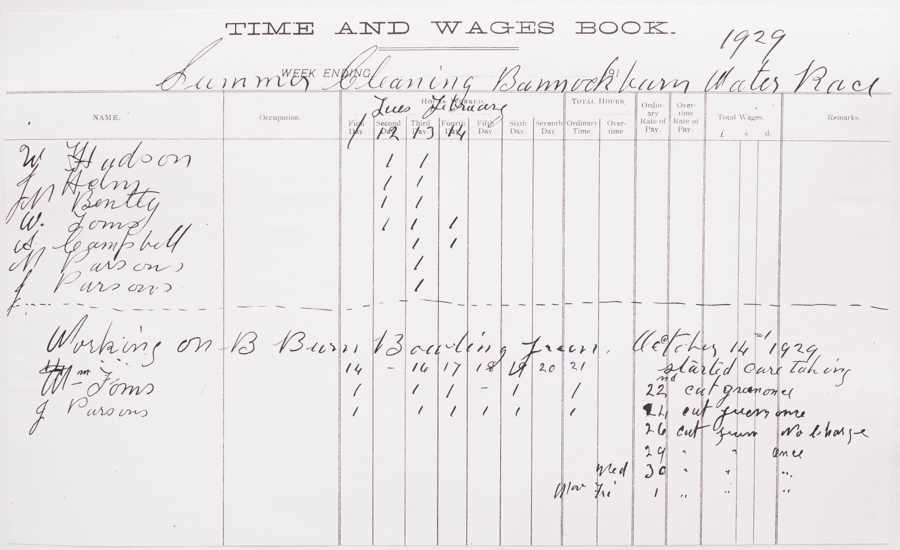 TIME AND WAGES BOOK.
1929
WEEK ENDING 191
Summer Cleaning Bannockburn Water Race
NAME. Occupation. HOURS WORKED. TOTAL HOURS. Ordinary Rate of Pay. Overtime Rate of Pay. Total Wages. Remarks.
Tues February
First Day. Second Day. Third Day. Fourth Day. Fifth Day. Sixth Day. Seventh Day. Ordinary Time. Overtime. £ s. d.
12 13 14
W Hudson 1 1
Adam 1 1
Bently 1 1
W. Toms 1 1 1
A Campbell 1 1
N Parsons 1
J Parsons 1
Working on B Burn Bowling green. October 14 1929
14 - 16 17 18 19 20 21 started care taking
Wm Toms 1 1 1 - 1 1 22nd cut green once
J Parsons 1 1 1 1 1 1 24 cut green once
26 cut green No Charge
29 " " once
Wed 30 " " "
Nov Fri 1 " " "